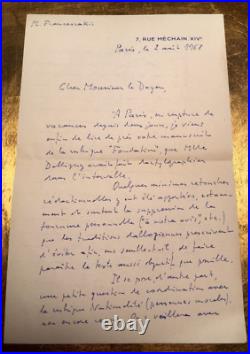 M. Francescakis
7, RUE MÉCHAIN. XIVe
Paris, le 2 août 1968
Cher Monsieur le Doyen,
À Paris, en rupture de
vacances depuis deux jours, je viens
enfin de lire de près votre manuscrit
de la rubrique "Fondations", que Mlle
avait fait dactylographier
dans l'intervalle.
Quelques minimes retouches
rédactionnelles y ont été apportées, notam-
ment de surtout la suppression de la
tournure personnelle (à notre avis, etc.)
que les traditions dalloziennes prescrivent
d'éviter afin, me semble-t-il, de faire
paraître le texte aussi objectif que possible.
Il se pose d'autre part,
une petite question de coordination avec
la rubrique Nationalité (personnes morales),
non encore On veillera avec
© ebay